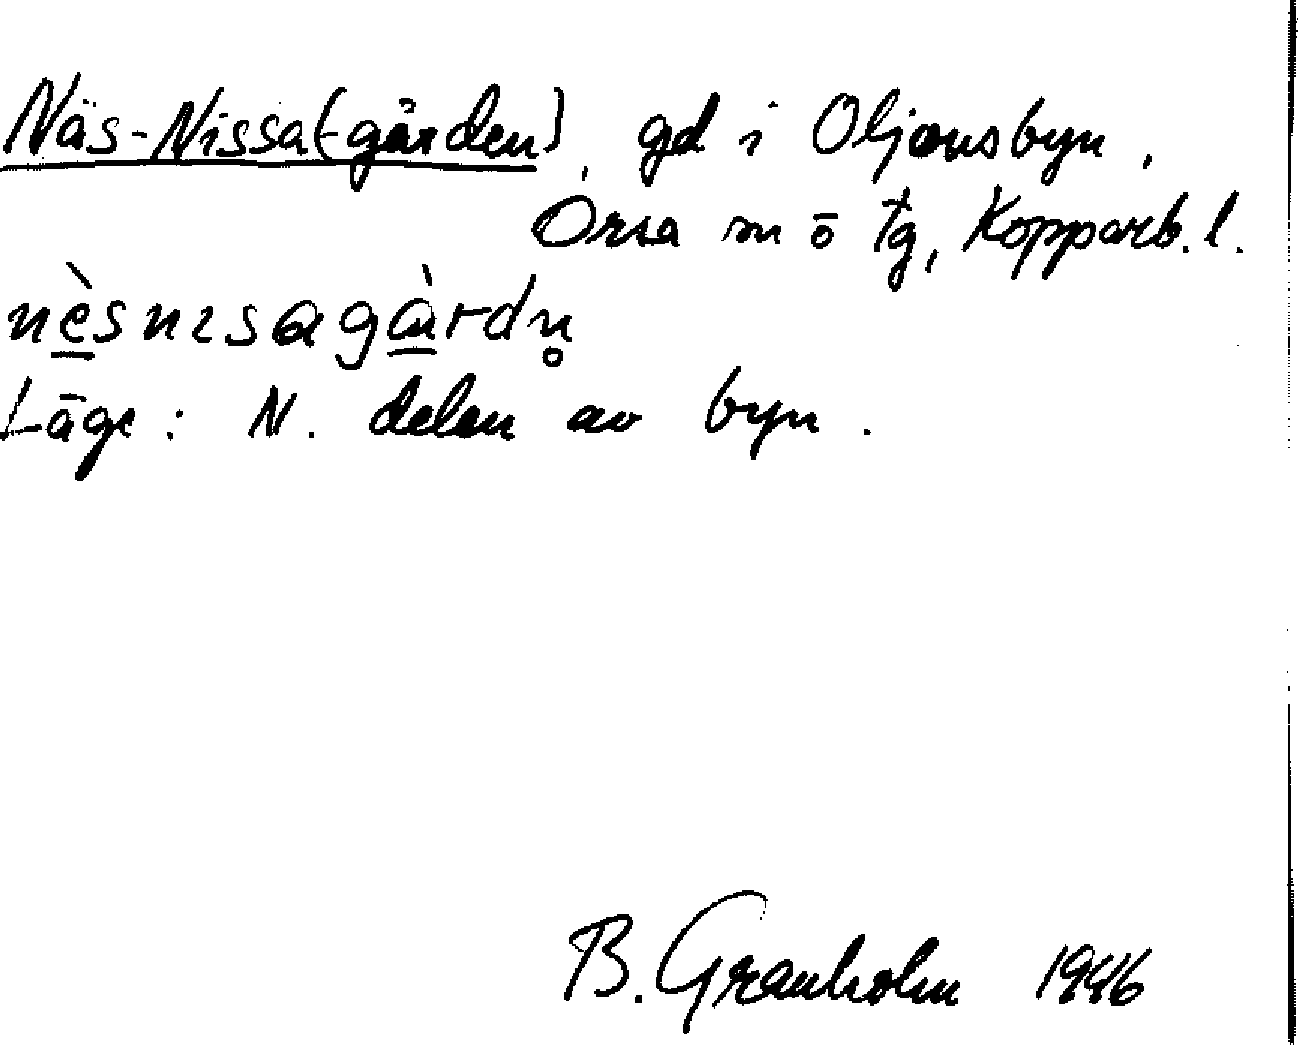 Näs-Nissa(-gården), gd i Oljonsbyn,
Orsa sn ö tg, Kopparb. l.
nèsnɪsagàrdn̥
Läge: N. delen av byn.
B. Granholm 1946